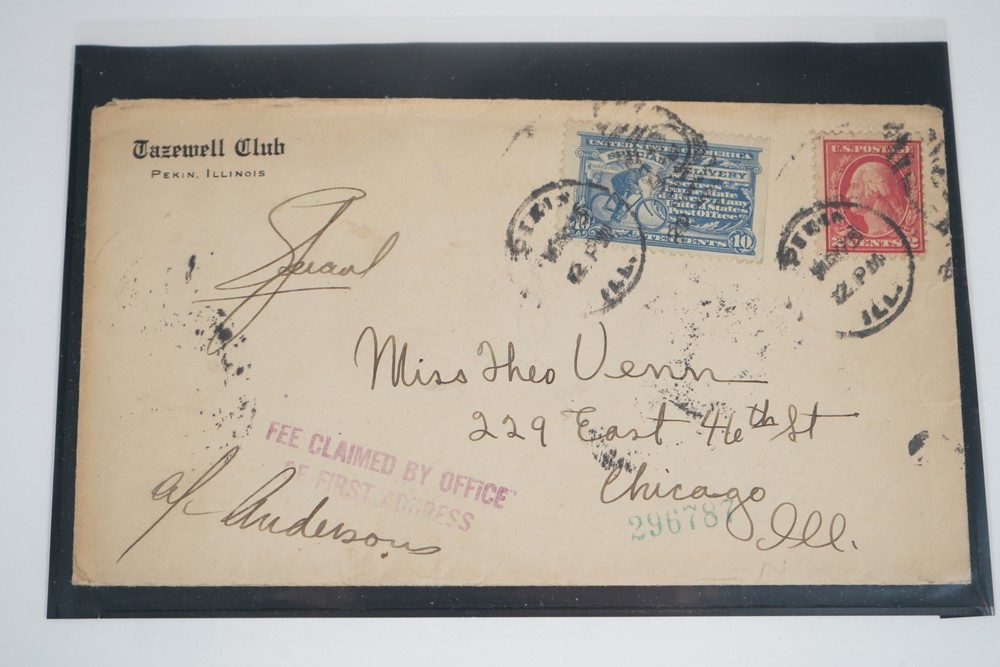 Tazewell Club
PEKIN, ILLINOIS
UNITED STATES OF AMERICA
SPECIAL DELIVERY
Secures
Immediate
Delivery at any
United States
Post Office
TEN CENTS 10
U.S. POSTAGE
2 CENTS 2
PEKIN
12 PM
ILL.
PEKIN
12 PM
ILL.
Miss Theo Venn
229 East 46th St
Chicago
Ill.
FEE CLAIMED BY OFFICE
OF FIRST ADDRESS
296787
Andersons